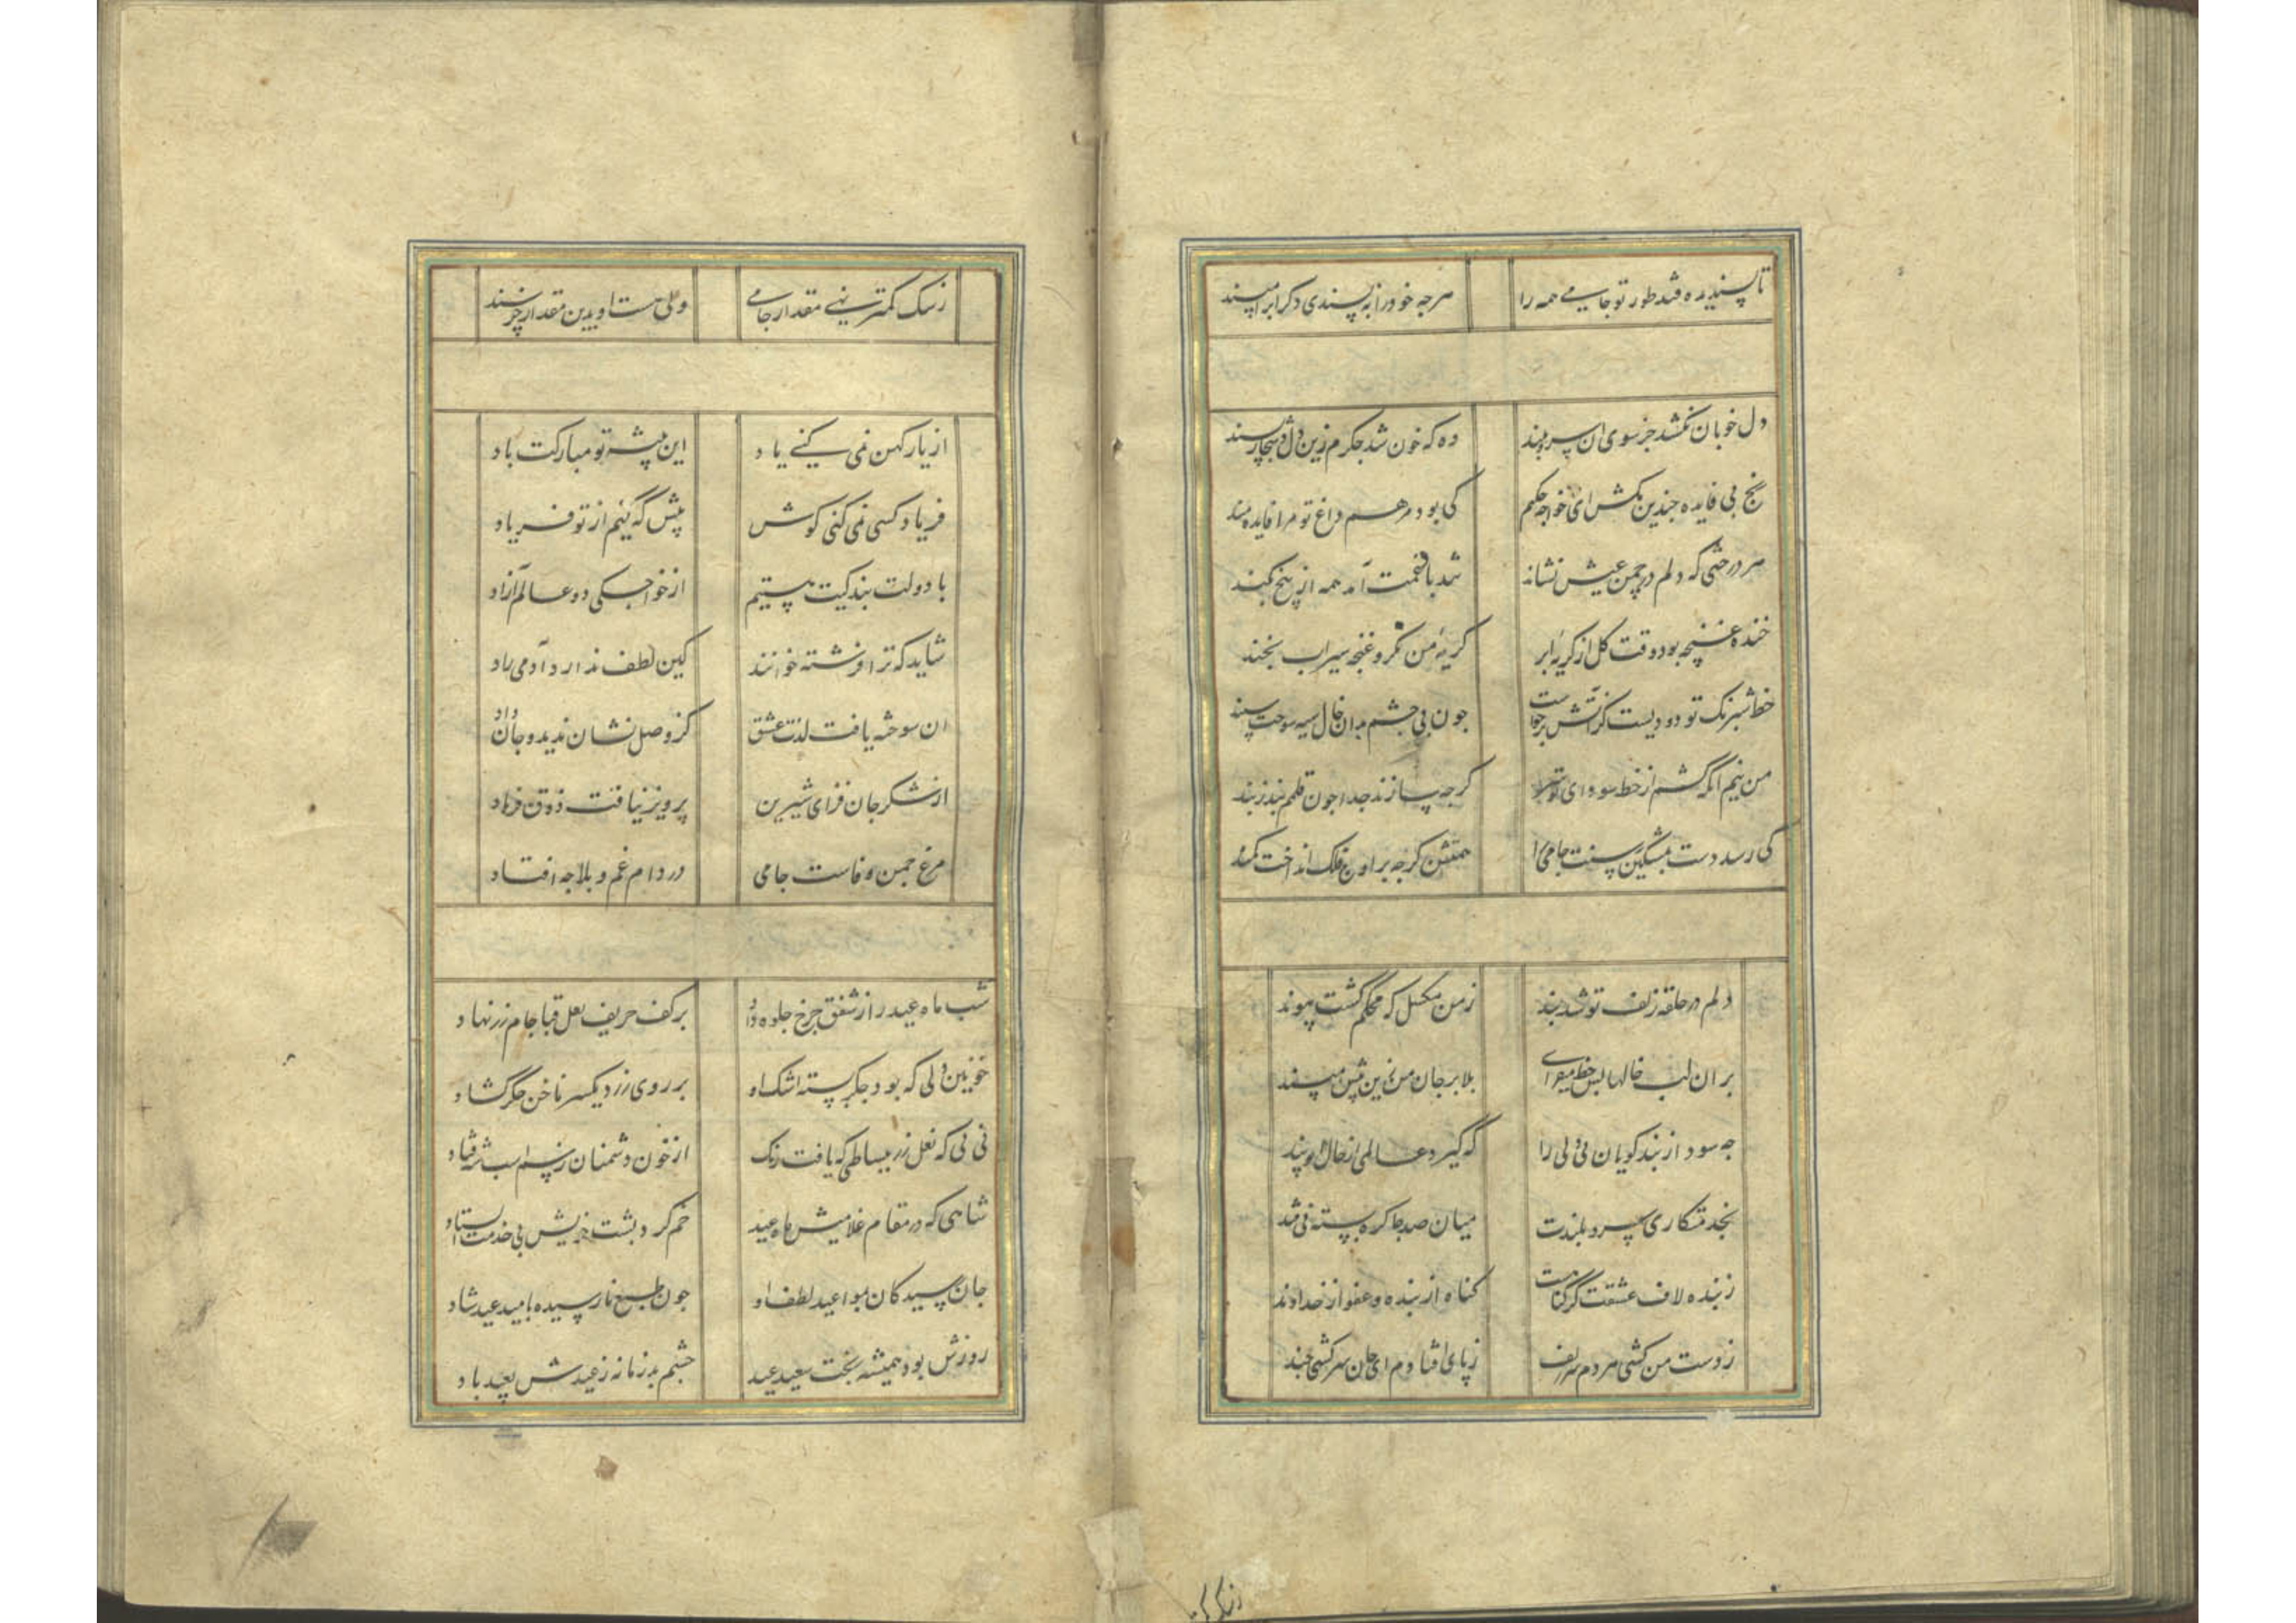 تا پسندیده فتد طور تو جامی همه را
هرچه خود را نه پسندی دکرانرا مپسند
دل خوبان نکشد جز سوی آن سرو بلند
وه که خون شد جکرم زین دل
رنج بی فایده جندین مکش ای خواجه حکیم
کی بود مرهم داغ تو مرا فایده مند
هر درختی که دلم در چمن عیش نشاند
شد با غمت آمد همه از بیخ بکند
خنده غنچه بود وقت کل از کریه ابر
کریه من نکر و غنجه سیراب بخند
خط شبرنک تو دودیست کز آتش برخواست
جون بی جشم بدان خال سیه سوخت سپند
من نیم آنکه کشم از خط سودای تو سر
کرجه سازند جدا جون قلمم بند ز بند
کی رسد دست بمشکین رسنت جامی را
همتش کرجه بر اوج فلک انداخت کمند
دلم در حلقه زلف تو شد بند
ز من مکسل که محکم گشت پیوند
بر آن لب خالها بس خط میفزای
بلا بر جان من زین بیش مپسند
جه سود از پند کویان بی دلی را
که گیرد عالمی از حال او پند
بخدمتکاری سرو بلندت
میان صد جا کره بسته نی قند
ز بنده لاف عشقت گر گناهست
کناه از بنده و عفو از خداوند
ز دست من کشی هر دم سر زلف
ز پای افتادم ای جان سرکشی جند
زنک کر
ز سک کمتر نهی مقدار جامی
ولی هست او بدین مقدار خرسند
از یار کهن نمی کنی یاد
این پیشه تو مبارکت باد
فریاد کسی نمی کنی کوش
پیش که کنیم از تو فریاد
با دولت بندکیت هستیم
از خواجکی دو عالم آزاد
شاید که ترا فرشته خوانند
کین لطف ندارد آدمی زاد
آن سوخته یافت لذت عشق
کز وصل نشان ندید و جان داد
از شکر جان فزای شیرین
پرویز نیافت ذوق فرهاد
مرغ جمن وفاست جامی
در دام غم و بلا جه افتاد
شب ماه عید را ز شفق جرخ جلوه داد
بر کف حریف لعل قبا جام زر نهاد
خونین دلی که بود جکر بسته اشک او
بر روی زرد یکسر ناخن جگر گشاد
نی نی که نعل زر ببساطی که یافت رنک
از خون دشمنان ز سم اسب شه فتاد
شاهی که در مقام غلامیش ماه عید
خم کرد پشت خویش بی خدمت ایستاد
جانها رسیدکان بمواعید لطف او
جون طبع نارسیده بامید عید شاد
روزش بود همیشه بخت سعید عید
جشم بد زمانه ز عیدش بعید باد